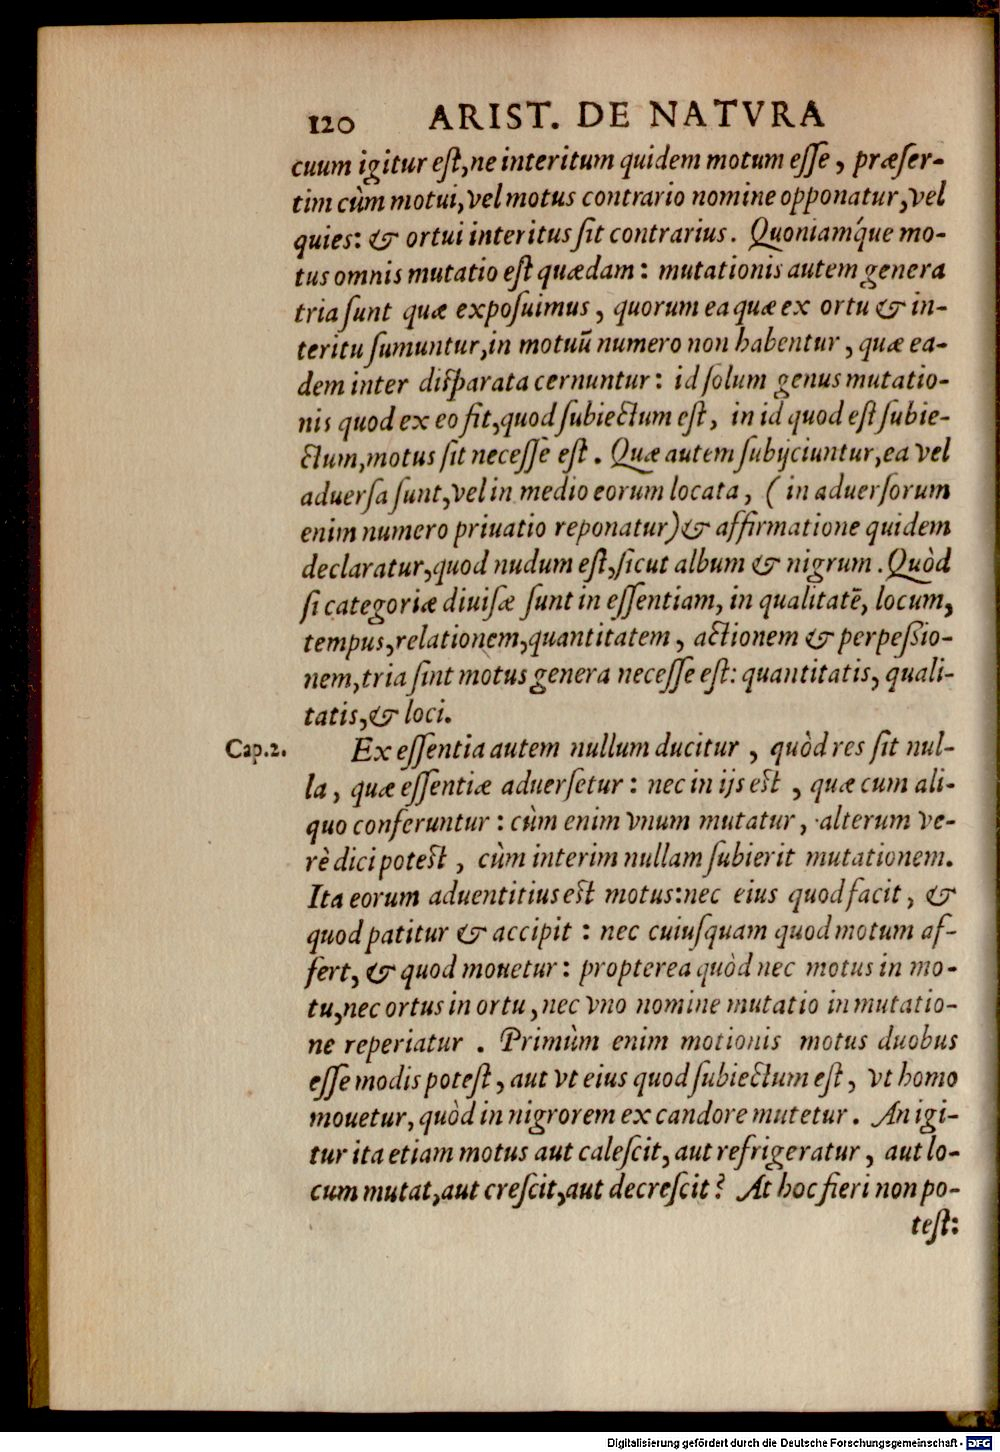 120 ARIST. DE NATVRA
cuum igitur eſt, ne interitum quidem motum eſſe, præſer-
tim cùm motui, vel motus contrario nomine opponatur, vel
quies: & ortui interitus ſit contrarius. Quoniamq́ue mo-
tus omnis mutatio eſt quædam: mutationis autem genera
tria ſunt quæ expoſuimus, quorum ea quæ ex ortu & in-
teritu ſumuntur, in motuū numero non habentur, quæ ea-
dem inter diſparata cernuntur: id ſolum genus mutatio-
nis quod ex eo fit, quod ſubiectum eſt, in id quod eſt ſubie-
ctum, motus ſit neceſſe eſt. Quæ autem ſubijciuntur, ea vel
aduerſa ſunt, vel in medio eorum locata, (in aduerſorum
enim numero priuatio reponatur) & affirmatione quidem
declaratur, quod nudum eſt, ſicut album & nigrum. Quòd
ſi categoriæ diuiſæ ſunt in eſſentiam, in qualitatē, locum,
tempus, relationem, quantitatem, actionem & perpeſsio-
nem, tria ſint motus genera neceſſe eſt: quantitatis, quali-
tatis, & loci.
Cap.2. Ex eſſentia autem nullum ducitur, quòd res ſit nul-
la, quæ eſſentiæ aduerſetur: nec in ijs est, quæ cum ali-
quo conferuntur: cùm enim vnum mutatur, alterum ve-
rè dici potest, cùm interim nullam ſubierit mutationem.
Ita eorum aduentitius est motus: nec eius quod facit, &
quod patitur & accipit: nec cuiuſquam quod motum af-
fert, & quod mouetur: propterea quòd nec motus in mo-
tu, nec ortus in ortu, nec vno nomine mutatio in mutatio-
ne reperiatur. Primùm enim motionis motus duobus
eſſe modis poteſt, aut vt eius quod ſubiectum eſt, vt homo
mouetur, quòd in nigrorem ex candore mutetur. An igi-
tur ita etiam motus aut caleſcit, aut refrigeratur, aut lo-
cum mutat, aut creſcit, aut decreſcit? At hoc fieri non po-
teſt:
Digitalisierung gefördert durch die Deutsche Forschungsgemeinschaft - DFG